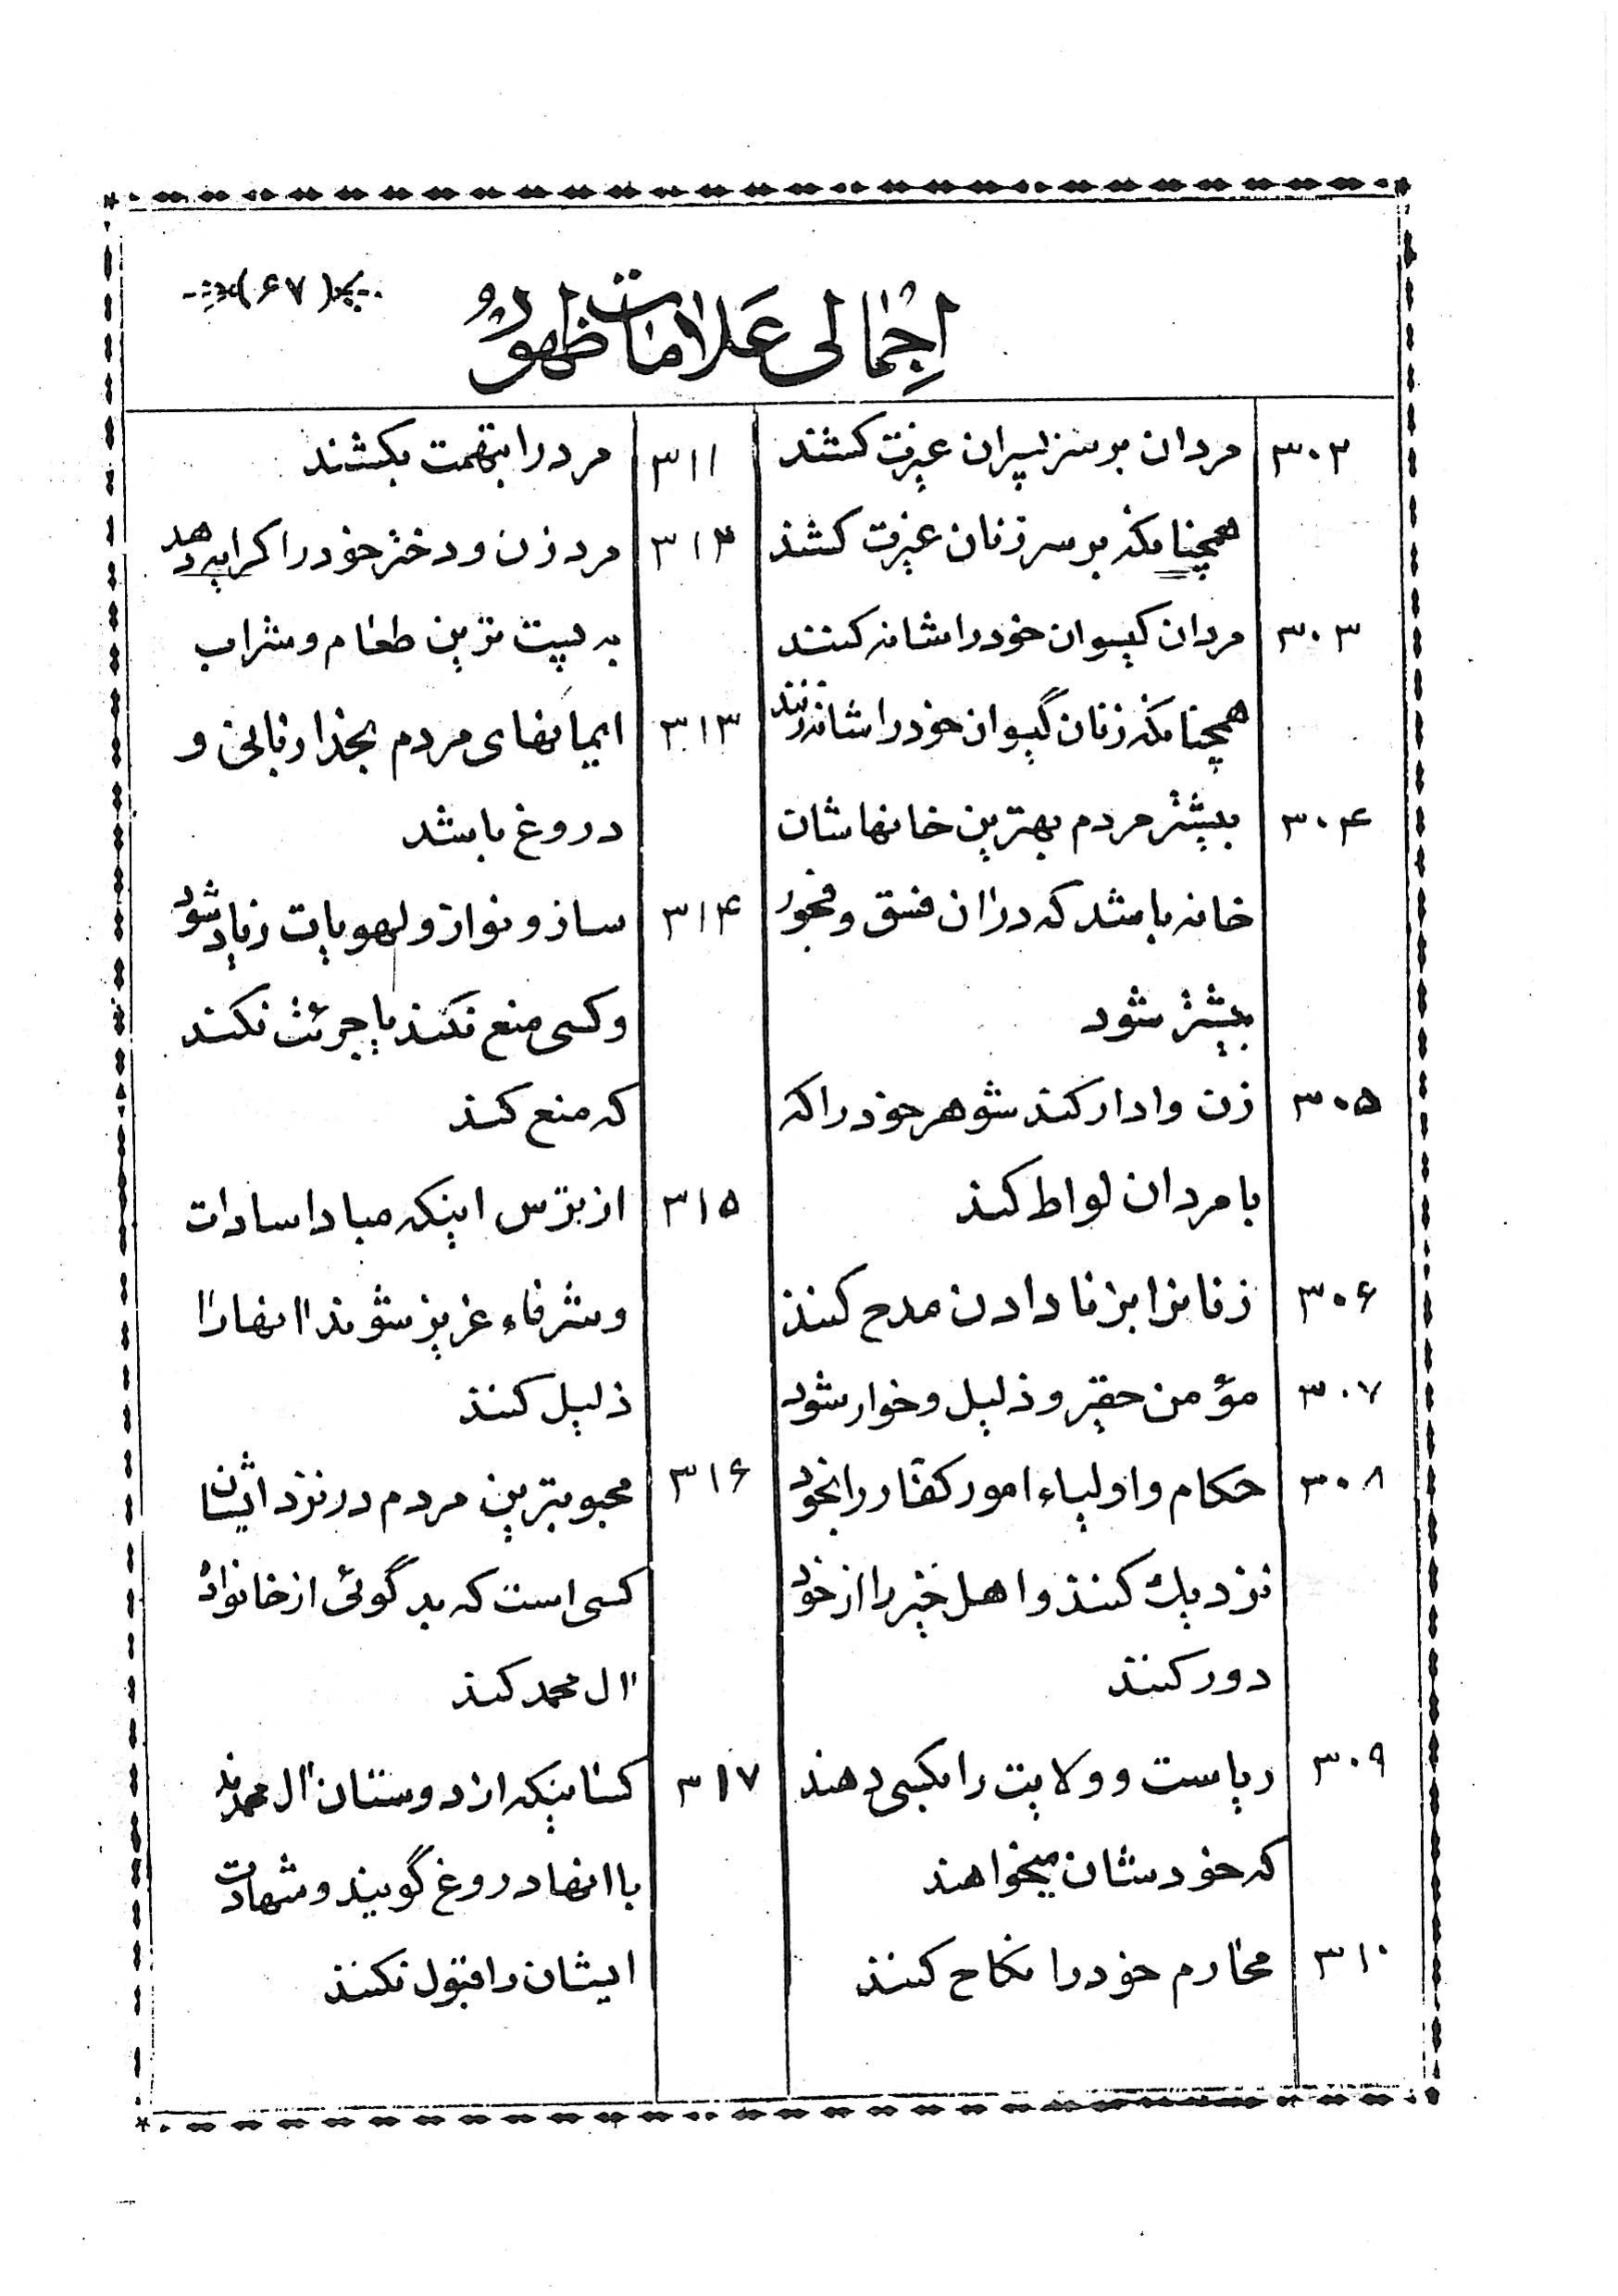 (۶۷)
اجمالی علامات ظهور
۳۰۲ مردان بر سر پسران غیرت کشند
همچنانکه بر سر زنان غیرت کشند
۳۰۳ مردان گیسوان خود را شانه کنند
همچنانکه زنان گیسوان خود را شانه زنند
۳۰۴ بیشتر مردم بهترین خانهاشان
خانه باشد که در آن فسق و فجور
بیشتر شود
۳۰۵ زن وادار کند شوهر خود را که
با مردان لواط کند
۳۰۶ زنانرا بزنا دادن مدح کنند
۳۰۷ مؤمن حقیر و ذلیل و خوار شود
۳۰۸ حکام و اولیاء امور کفار را بخود
نزدیک کنند و اهل خیر را از خود
دور کنند
۳۰۹ ریاست و ولایت را بکسی دهند
که خودشان میخواهند
۳۱۰ محارم خود را نکاح کنند
۳۱۱ مرد را بتهمت بکشند
۳۱۲ مرد زن و دختر خود را کرایه دهد
به پست ترین طعام و شراب
۳۱۳ ایمانهای مردم بخدا زبانی و
دروغ باشد
۳۱۴ ساز و نواز و لهویات زیاد شود
و کسی منع نکند یا جرئت نکند
که منع کند
۳۱۵ از ترس اینکه مبادا سادات
و شرفاء عزیز شوند آنها را
ذلیل کنند
۳۱۶ محبوبترین مردم در نزد ایشان
کسی است که بدگوئی از خانواده
آل محمد کند
۳۱۷ کسانیکه از دوستان آل محمدند
با آنها دروغ گویند و شهادت
ایشان را قبول نکنند